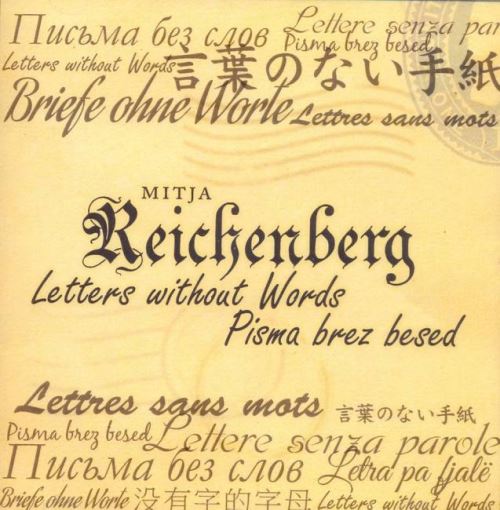 Письма без слов Lettere senza par
Pisma brez besed
Letters without Words
言葉のない手紙
Briefe ohne Worle Lettres sans mots
MITJA
Reichenberg
Letters without Words
Pisma brez besed
Lettres sans mots 言葉のない手紙
Pisma brez besed Lettere senza parole
Письма без слов Letra pa fjalë
Briefe ohne Worle 没有字的字母 Letters without Words